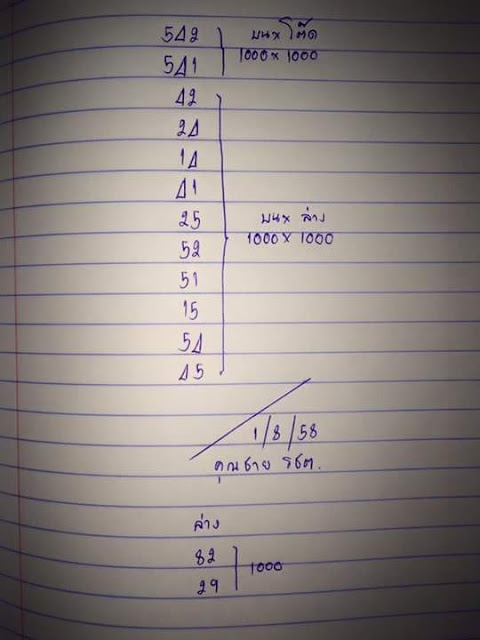 542 บน x โต๊ด
541 1000 x 1000
42
24
14
41
25 บน x ล่าง
52 1000 x 1000
51
15
54
45
1/8/58
คุณชาย
ล่าง
82 1000
29